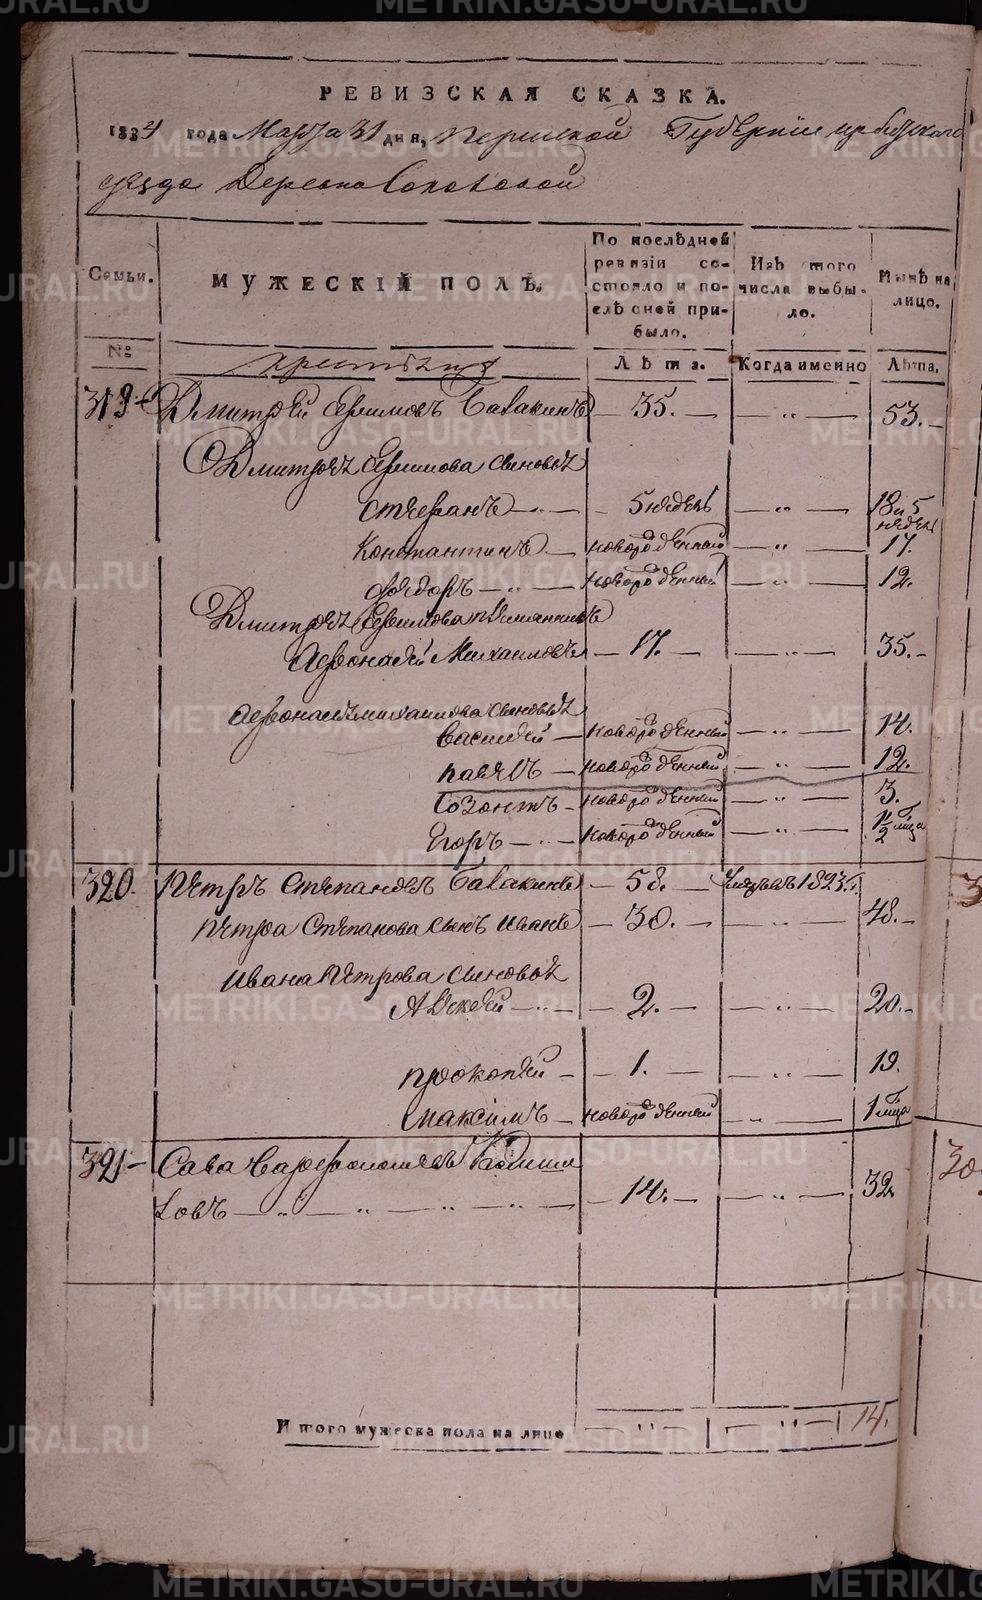 METRIKI.GASO-URAL.RU
РЕВИЗСКАЯ СКАЗКА.
1834 года Марта 31 дня, Пермской Губернии Ирбитскаго
уезда Деревна Соколовой
Семьи. МУЖЕСКІЙ ПОЛЪ. По послѣдней ревизіи состояло и послѣ оней прибыло. Изъ того числа выбыло. Нынѣ на лицо.
№ крестьяня Лѣта. Когда именно Лѣта.
319 Дмитрей Ефимовъ Бабакинъ — 35. — „ — 53. —
Дмитрея Ефимова сыновья
Степанъ — „ — 5 недель — „ — 18 и 5 недель
Константинъ — новорожденный — „ — 17.
Федоръ — „ — новорожденный — „ — 12.
Дмитрея Ефимова племянникъ
Афонасей Михаиловъ — 17. — „ — 35. —
Афонасья михаилова сыновья
Василей — новорожденный — „ — 14.
Павелъ — новорожденный — „ — 12.
Созонтъ — новорожденный — „ — 3.
Егоръ — „ — новорожденный — „ — 1/2 года
320. Петръ Степановъ Бабакинъ — 58. — Умеръ въ 1823 г.
Петра Степанова сынъ Иванъ — 30. — „ — 48. —
Ивана Петрова сыновья
Алексей — „ — 2. — „ — 20. —
Прокопей — 1. — „ — 19.
Максимъ — новорожденный „ — 1 года
321 — Сава Варфоломеевъ
ловъ — „ — „ — „ — „ — 14. — „ — 32
И того мужеска пола на лице — „ — „ — 14.